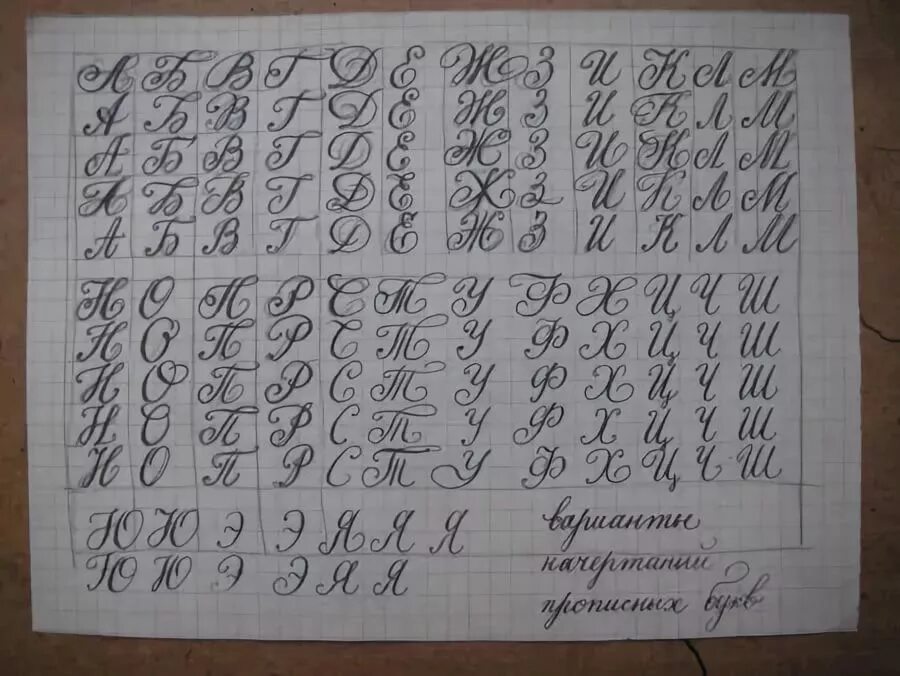 А Б В Г Д Е Ж З И К Л М
А Б В Г Д Е Ж З И К Л М
А Б В Г Д Е Ж З И К Л М
А Б В Г Д Е Ж З И К Л М
А Б В Г Д Е Ж З И К Л М
Н О П Р С Т У Ф Х Ц Ч Ш
Н О П Р С Т У Ф Х Ц Ч Ш
Н О П Р С Т У Ф Х Ц Ч Ш
Н О П Р С Т У Ф Х Ц Ч Ш
Н О П Р С Т У Ф Х Ц Ч Ш
Ю Ю Э Э Я Я Я
Ю Ю Э Э Я Я
варианты
начертаний
прописных букв